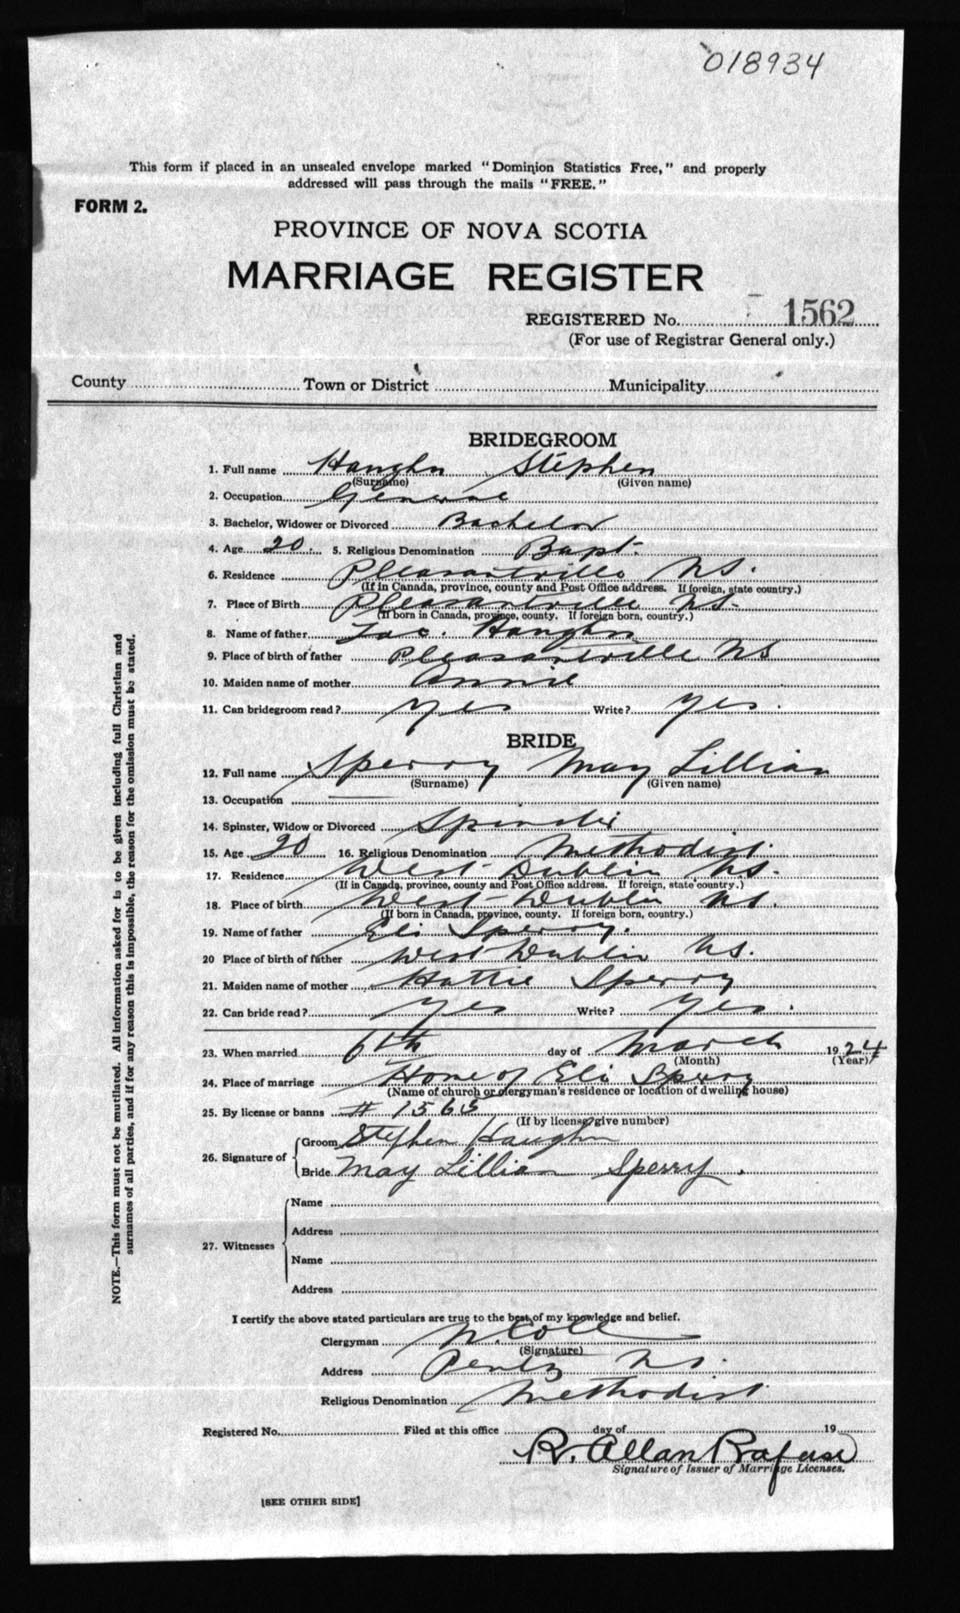 018934
This form if placed in an unsealed envelope marked "Dominion Statistics Free," and properly
addressed will pass through the mails "FREE."
FORM 2.
PROVINCE OF NOVA SCOTIA
MARRIAGE REGISTER
REGISTERED No. 1562
(For use of Registrar General only.)
County Town or District Municipality
BRIDEGROOM
1. Full name Haughn Stephen
(Surname) (Given name)
2. Occupation General
3. Bachelor, Widower or Divorced Bachelor
4. Age 20 5. Religious Denomination Bapt.
6. Residence Pleasantville N.S.
(If in Canada, province, county and Post Office address. If foreign, state country.)
7. Place of Birth Pleasantville N.S.
(If born in Canada, province, county. If foreign born, country.)
8. Name of father Haughn
9. Place of birth of father Pleasantville N.S
10. Maiden name of mother Annie
11. Can bridegroom read? Yes Write? Yes.
BRIDE
12. Full name Sperry May Lillian
(Surname) (Given name)
13. Occupation
14. Spinster, Widow or Divorced Spinster
15. Age 20 16. Religious Denomination Methodist.
17. Residence West Dublin N.S.
(If in Canada, province, county and Post Office address. If foreign, state country.)
18. Place of birth West Dublin N.S.
(If born in Canada, province, county. If foreign born, country.)
19. Name of father Eli Sperry.
20 Place of birth of father West Dublin N.S.
21. Maiden name of mother Hattie Sperry
22. Can bride read? Yes Write? Yes.
23. When married 6th day of March 1924
(Month) (Year)
24. Place of marriage Home of Eli Sperry
(Name of church or clergyman's residence or location of dwelling house)
25. By license or banns # 1565
(If by license give number)
26. Signature of Groom Stephen Haughn
Bride May Lillian Sperry.
27. Witnesses
Name
Address
Name
Address
I certify the above stated particulars are true to the best of my knowledge and belief.
Clergyman W. Cole
(Signature)
Address Pentz N.S.
Religious Denomination Methodist
Registered No. Filed at this office day of 19
R. Allan Rafuse
Signature of Issuer of Marriage Licenses.
[SEE OTHER SIDE]
NOTE.—This form must not be mutilated. All information asked for is to be given including full Christian and
surnames of all parties, and if for any reason this is impossible, the reason for the omission must be stated.